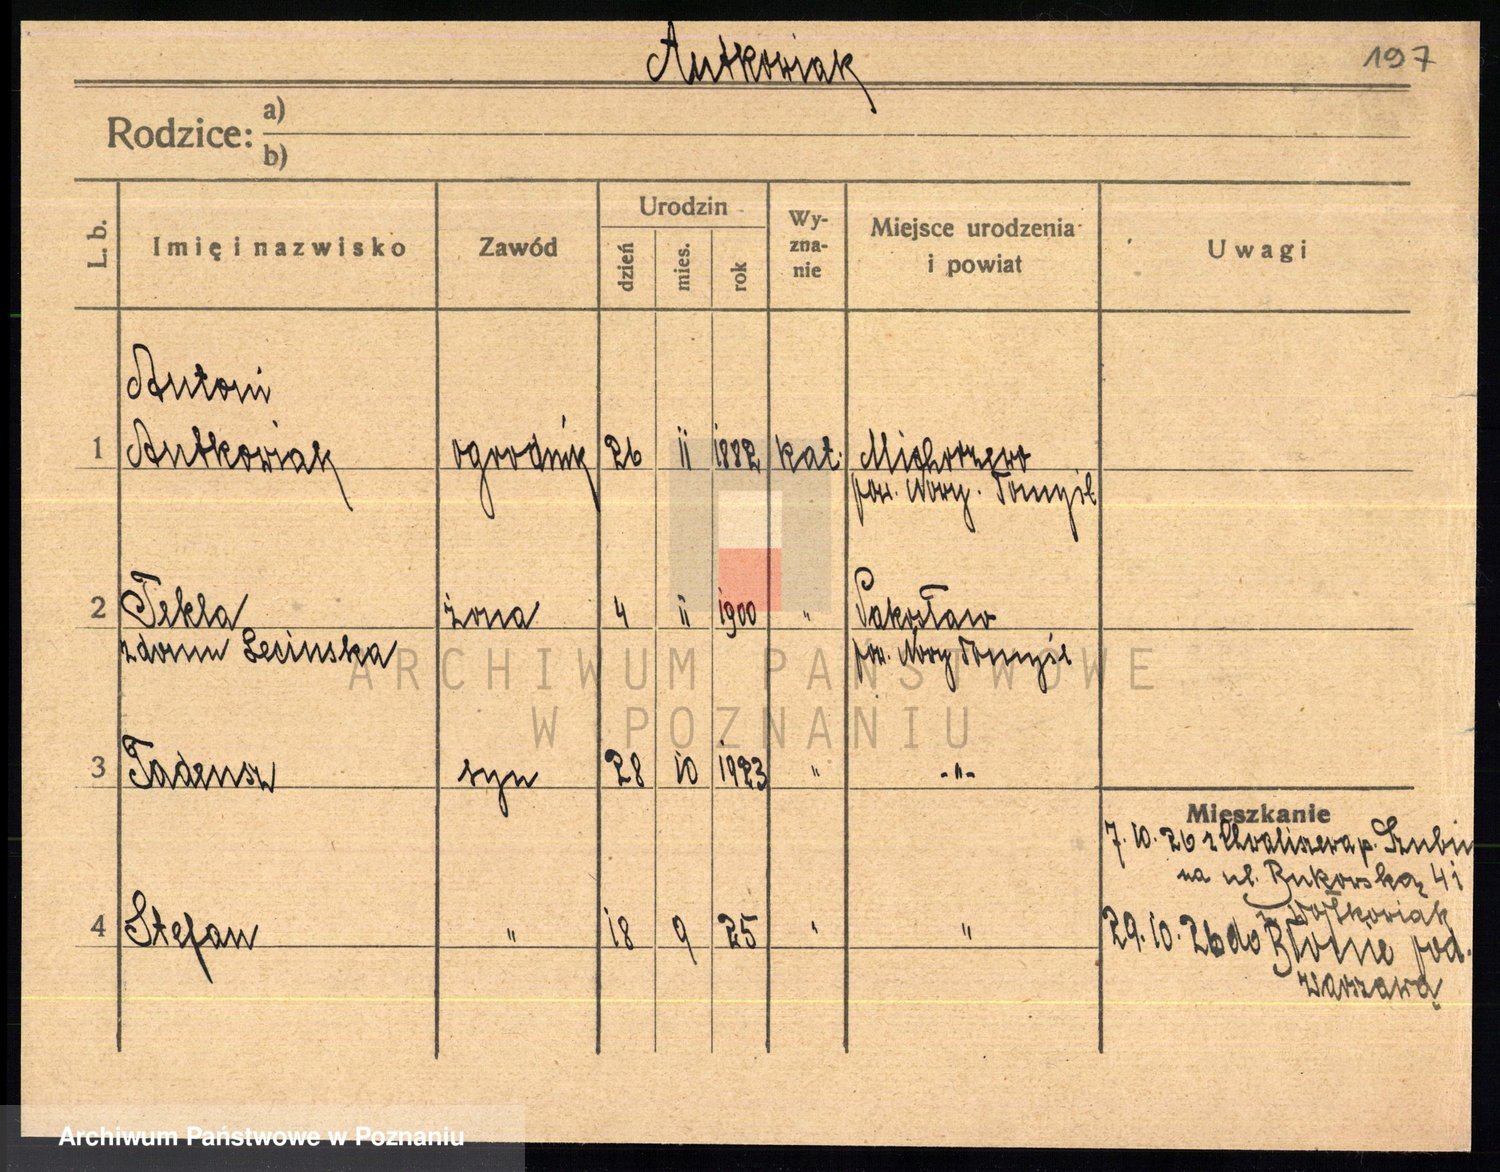 Antkowiak
197
Rodzice: a)
b)
L. b.
Imię i nazwisko
Zawód
Urodzin
dzień
mies.
rok
Wy-
zna-
nie
Miejsce urodzenia
i powiat
Uwagi
Antoni
1 Antkowiak ogrodnik 26 11 1882 kat. Michorzewo
pow. Nowy-Tomyśl
2 Tekla żona 4 11 1900 " Pakosław
z domu Lecinska pow. Nowy Tomyśl
ARCHIWUM PAŃSTWOWE
W POZNANIU
3 Tadeusz syn 28 10 1923 " -"-
Mieszkanie
7. 10. 26 z Chraliszewa p. Szubin
na ul. Bukowską 41
4 Stefan " 18 9 25 " "
z. Wojtkowiak
29. 10. 26 do Błonie pod.
Warszawą
Archiwum Państwowe w Poznaniu